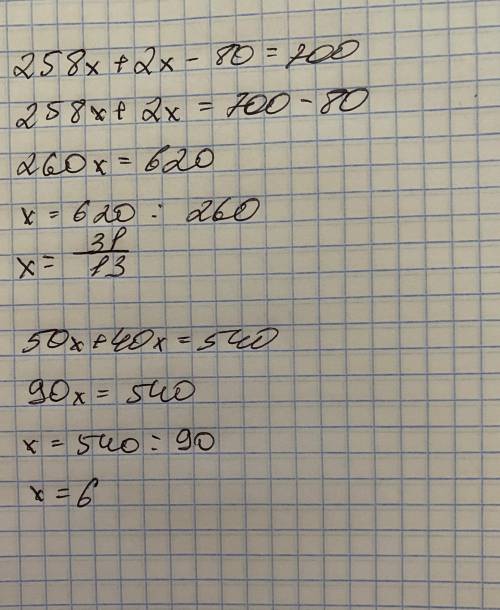 258x + 2x - 80 = 700
258x + 2x = 700 - 80
260x = 620
x = 620 : 260
x = 31/13
50x + 40x = 540
90x = 540
x = 540 : 90
x = 6